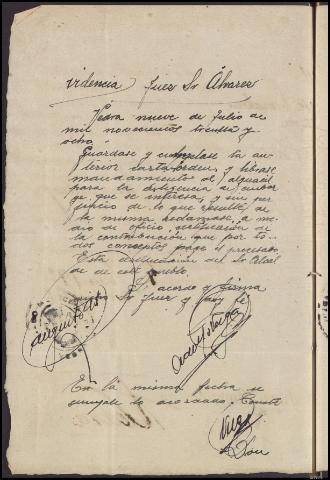 videncia Juez Sr Álvarez
Yedra nueve de Julio de
mil novecientos treinta y
ocho.
Guárdase y cúmplase la an
terior carta orden, y líbrese
mandamiento al alguacil
para la diligencia de embar
go que se interesa, y sin per
juicio de lo que resulte de
la misma reclámase, a me
dio de oficio, certificación de
la contribución que por to
dos conceptos paga el procesado.
Esta certificación del Sr Alcal
de de este pueblo.
Lo acordó y firma
Sr Juez y doy fé
En la misma fecha se
cumple lo acordado.